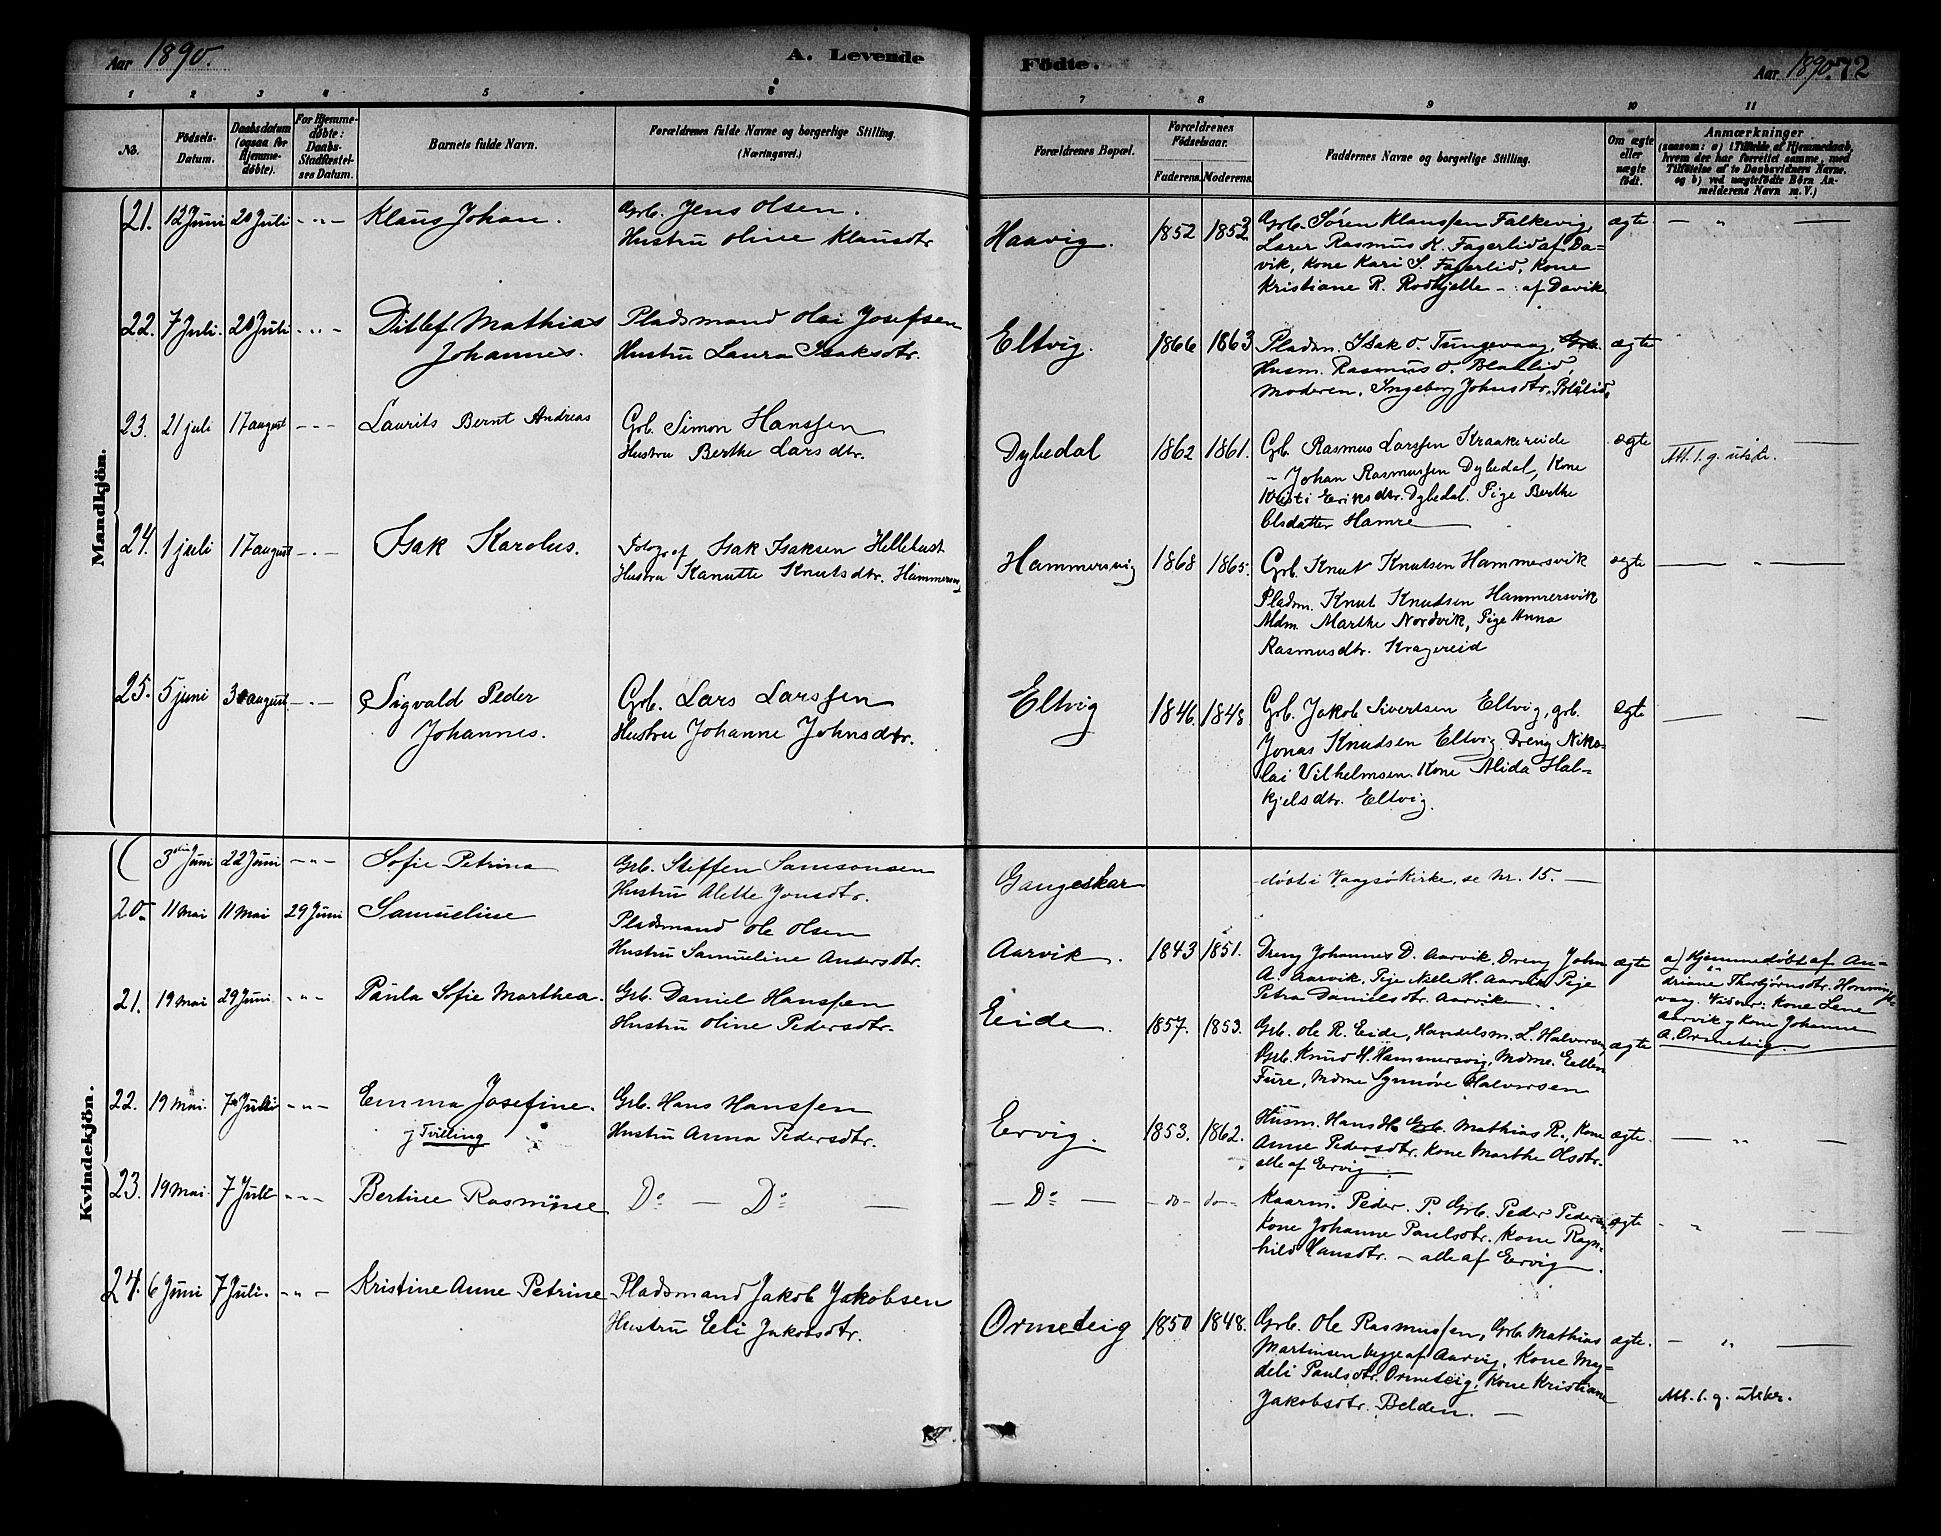 Aar 1890.
A. Levende
Fødte.
Aar 1890. 72
1 2 3 4 5 6
7 8 9 10 11
No.
Fødsels-
Datum.
Daabsdatum
(ogsaa for
Hjemme-
døbte).
For Hjemme-
døbte:
Daabs-
Stadfæstel-
ses Datum.
Barnets fulde Navn.
Forældrenes fulde Navne og borgerlige Stilling.
(Næringsvei.)
Forældrenes Bopæl.
Forældrenes
Fødselsaar.
Faderens. Moderens.
Faddernes Navne og borgerlige Stilling.
Om ægte
eller
uægte
født.
Anmærkninger
(saasom: a) i Tilfælde af Hjemmedaab,
hvem der har forrettet samme, med
Tilføielse af to Daabsvidners Navne.
og b) ved uægtefødte Børn An-
melderens Navn m. V.)
Mandkjön.
21. 12 Juni 20 Juli - " - Klaus Johan. Grb. Jens Olsen.
Hustru Oline Klausdtr
Haavig. 1852 1852 Grb. Søren Klaussen Falkevig, ægte. - " -
Lærer Rasmus K. Fagerlid af Da-
vik, Kone Kari S. Fagerlid, Kone
Kristiane R. Rodhjelle - : af Davik
22. 7 Juli. 20 Juli - " - Ditlef Mathias Pladsmand Olai Josefsen
Johannes. Hustru Laura Isaksdtr.
Eltvig. 1866 1863 Pladsm. Isak O. Tungevaag, Grb. ægte
Husm. Rasmus O. Blaalid,
Moderen, Ingeborg Johnsdtr. Blålid.
23. 21 juli 17 august - - - Laurits Bernt Andreas Grb. Simon Hanssen
Hustru Berthe Larsdtr.
Dybedal 1862 1861. Grb. Rasmus Larssen Kraakereide ægte
- Johan Rasmussen Dybedal, Kone
Eriksdtr. Dybedal. Pige Berthe
Olsdatter Hamre
Att. l. g. utskr.
24. 1 juli 17 august - . - Isak Karolus. Fotograf Isak Isaksen Hillehust
Hustru Kanutte Knutsdtr. Hammersvg
Hammersvig 1868 1865. Grb. Knut Knutsen Hammersvik ægte - " -
Pladsm. Knut Knudsen Hammersvik
Mdm. Marthe Nordvik, Pige Anna
Rasmusdtr. Kragereid
25. 5 juni 3 august. - . - Sigvald Peder Grb. Lars Larssen
Johannes. Hustru Johanne Johnsdtr.
Eltvig 1846. 1848 Grb. Jakob Sivertsen Eltvig, grb. ægte
Jonas Knudsen Eltvig Dreng Niko-
lai Vilhelmsen. Kone Alida Hal-
kjelsdtr. Eltvig.
Kvindekjön.
3die Juni 22 Juni - " - Sofie Petrina Grb. Steffen Samsonsen
Hustru Alette Jonsdtr.
Gangeskar døbt i Vaagsø Kirke, se Nr. 15. -
20. 11 Mai 11 Mai 29 Juni Samueline Pladsmand Ole Olsen
Hustru Samueline Andersdtr.
Aarvik. 1843 1851. Dreng Johannes D. Aarvik, Dreng John ægte
A. Aarvik, Pige H. Aarvik Pige
Petra Danielsdtr. Aarvik
a) Hjemmedøbt af An-
driane Thorbjørnsdtr. Honnings-
vaag. Vidner: Kone Lene
Aarvik og Kone Johanne
A. Ormeteig.
21. 19 Mai 29 Juni - " - Paula Sofie Marthea. Grb. Daniel Hanssen
Hustru Oline Pedersdtr.
Eide. 1857. 1853. Grb. Ole R. Eide, Handelsm. L. Halvorsen, ægte
Grb. Knud H. Hammersvig, Mdme. Ellen
Fure, Mdme Synnøve Halvorsen
22. 19 Mai. 7 Juli - " - Emma Josefine. Grb. Hans Hanssen
Tvilling Hustru Anna Pedersdtr.
Ervig. 1853. 1862. Husm. Hans H. Grb. Mathias R., Kone ægte. - " -
Anne Pedersdtr. Kone Marthe Olsdtr.
alle af Ervig.
23. 19 Mai. 7 Juli - " - Bertine Rasmine Do - Do -
- Do - - do - do - Kaarm. Peder P. Grb. Peder Peders. ægte - " -
Kone Johanne Paulsdtr. Kone Ragn-
hild Hansdtr. - alle af Ervig.
24. 6 Juni 7 Juli. - " - Kristine Anne Petrine Pladsmand Jakob Jakobsen
Hustru Eli Jakobsdtr.
Ormeteig 1850 1848. Grb. Ole Rasmussen, Grb. Mathias ægte. - " -
Martinsen begge af Aarvig, Kone Mag-
deli Paulsdtr. Ormeteig, Kone Kristiane
Jakobsdtr. Belden. -
Att. l. g. utskr.